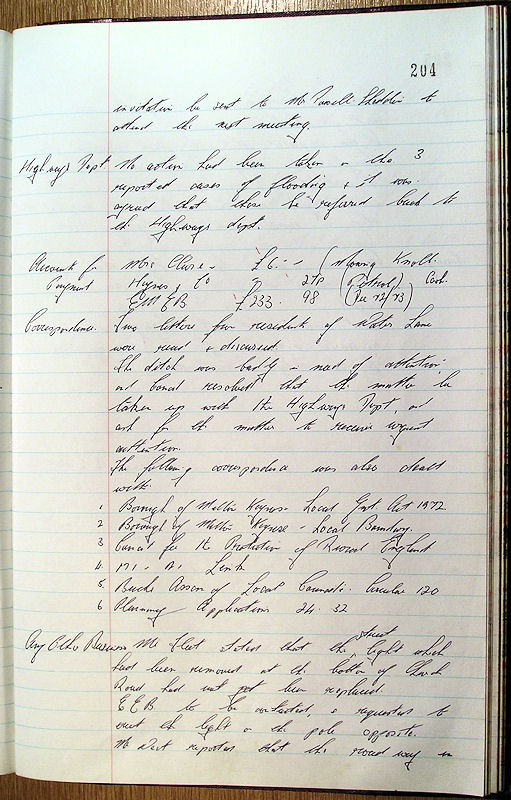 204
invitation be sent to Mr Powell-Shedden to
attend the next meeting.
Highways Dept. No action had been taken on the 3
reported cases of flooding & it was
agreed that these be referred back to
the Highways dept.
Accounts for Mrs Close - £6 - - (Mowing Knoll.
Payment 27p (Petrol) Cash.
EMEB £233. 98 (72/73)
Correspondence. Two letters from residents of Water Lane
were read & discussed.
The ditch was badly in need of attention
and Council resolved that the matter be
taken up with the Highways Dept, and
ask for the matter to receive urgent
attention.
The following correspondence was also dealt
with.
1 Borough of Milton Keynes - Local Govt Act 1972
2 Borough of Milton Keynes - Local Boundary.
3 Council for the Protection of Rural England
4. M1 - A1 Link
5 Bucks Assocn of Local Councils. Circular 120
6 Planning Applications 24. 32
Any Other Business Mr Fleet stated that the street light which
had been removed at the bottom of Church
Road had not yet been replaced.
EEB to be contacted, & requested to
erect the light on the pole opposite.
Mr reported that the road way in